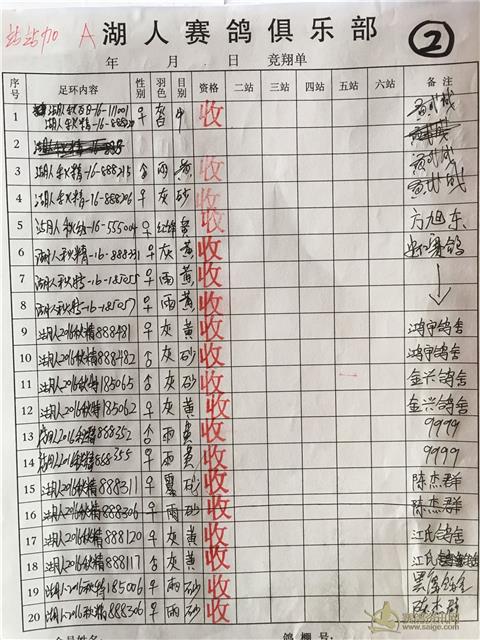 站站加 A 湖人赛鸽俱乐部 ②
年 月 日 竞翔单
序号 足环内容 性别 羽色 目别 资格 二站 三站 四站 五站 六站 备注
1 湖人秋精-16-888220 ♀ 灰 收
2
3 湖人秋精-16-888215 雨 黄 收
4 湖人秋精-16-888206 ♀ 灰 砂 收
5 湖人秋精-16-555004 ♀ 收 方旭东
6 湖人秋精-16-888231 ♀ 灰 黄 收
7 湖人秋精-16-185055 ♀ 雨 黄 收
8 湖人秋精-16-185057 ♀ 雨 黄 收
9 湖人2016秋精888481 ♀ 灰 黄 收 鸿宇鸽舍
10 湖人2016秋精888482 灰 砂 收 鸿宇鸽舍
11 湖人2016秋精185065 灰 砂 收 一 金兴鸽舍
12 湖人2016秋精185062 ♀ 灰 黄 收 金兴鸽舍
13 湖人2016秋精888352 雨 黄 收 9999
14 湖人2016秋精888355 ♀ 雨 黄 收 9999
15 湖人2016秋精888311 ♀ 砂 收 陈杰群
16 湖人2016秋精888306 ♀ 雨 砂 收 陈杰群
17 湖人2016秋精888120 ♀ 灰 黄 收 江氏鸽舍
18 湖人2016秋精888117 灰 黄 收 江氏鸽舍
19 湖人2016秋精185006 ♀ 雨 砂 收
20 湖人2016秋精888306 ♀ 雨 砂 收 陈杰群
会员姓名： 鸽棚号：
www.saige.com